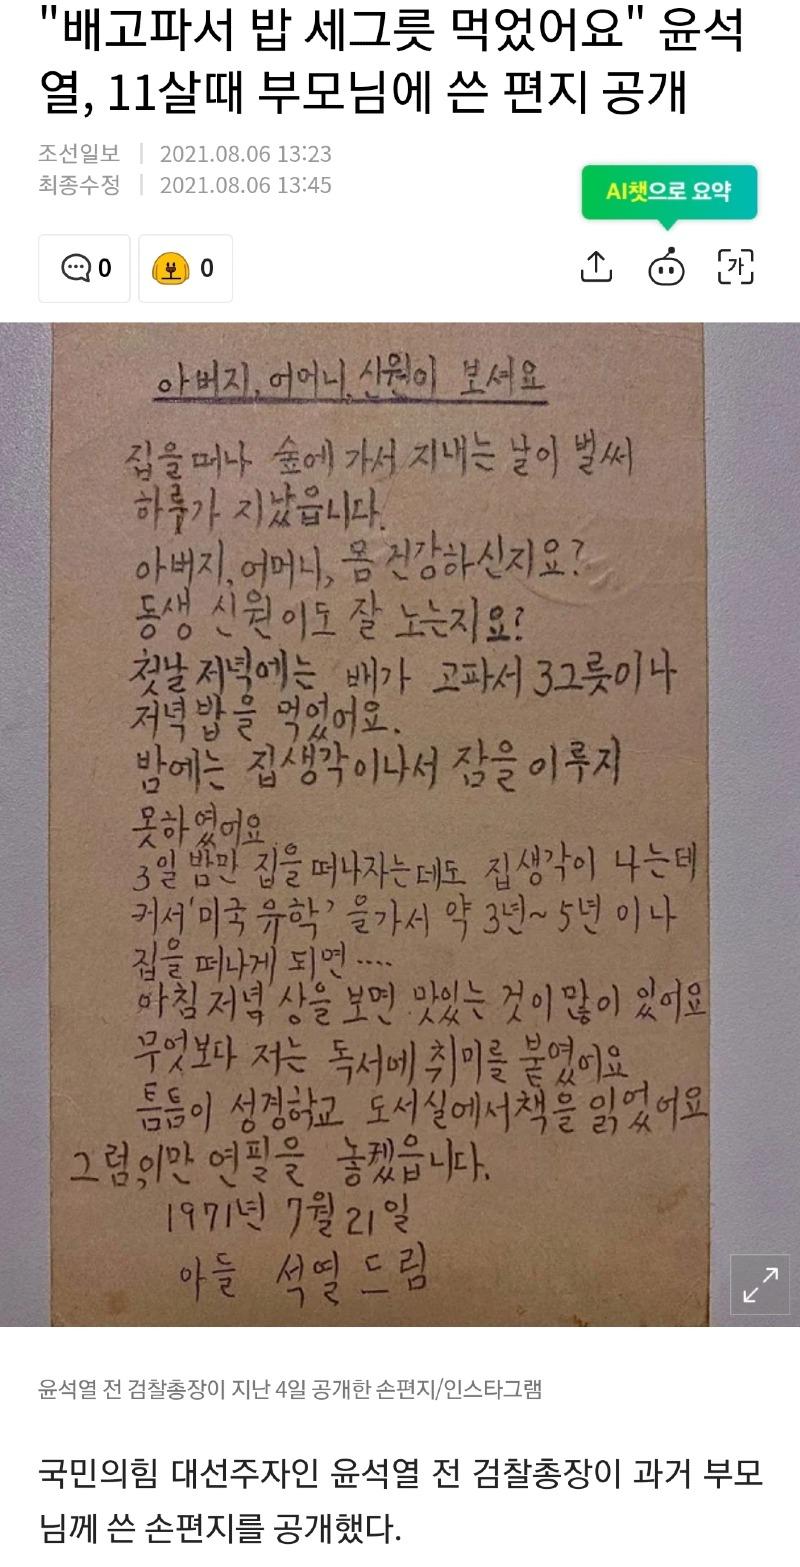 "배고파서 밥 세그릇 먹었어요" 윤석
열, 11살때 부모님에 쓴 편지 공개
조선일보 | 2021.08.06 13:23
최종수정 | 2021.08.06 13:45
AI챗으로 요약
0 0 가
아버지, 어머니, 신원이 보셔요
집을 떠나 숲에 가서 지내는 날이 벌써
하루가 지났읍니다.
아버지, 어머니, 몸 건강하신지요?
동생 신원이도 잘 노는지요?
첫날 저녁에는 배가 고파서 3그릇이나
저녁 밥을 먹었어요.
밤에는 집생각이나서 잠을 이루지
못하였어요.
3일 밤만 집을 떠나자는데도 집생각이 나는데
커서 '미국 유학' 을가서 약 3년~5년 이나
집을 떠나게 되면····
아침 저녁 상을 보면 맛있는 것이 많이 있어요
무엇보다 저는 독서에 취미를 붙였어요
틈틈이 성경학교 도서실에서책을 읽었어요
그럼, 이만 연필을 놓켔읍니다.
1971년 7월 21일
아들 석열 드림
윤석열 전 검찰총장이 지난 4일 공개한 손편지/인스타그램
국민의힘 대선주자인 윤석열 전 검찰총장이 과거 부모
님께 쓴 손편지를 공개했다.